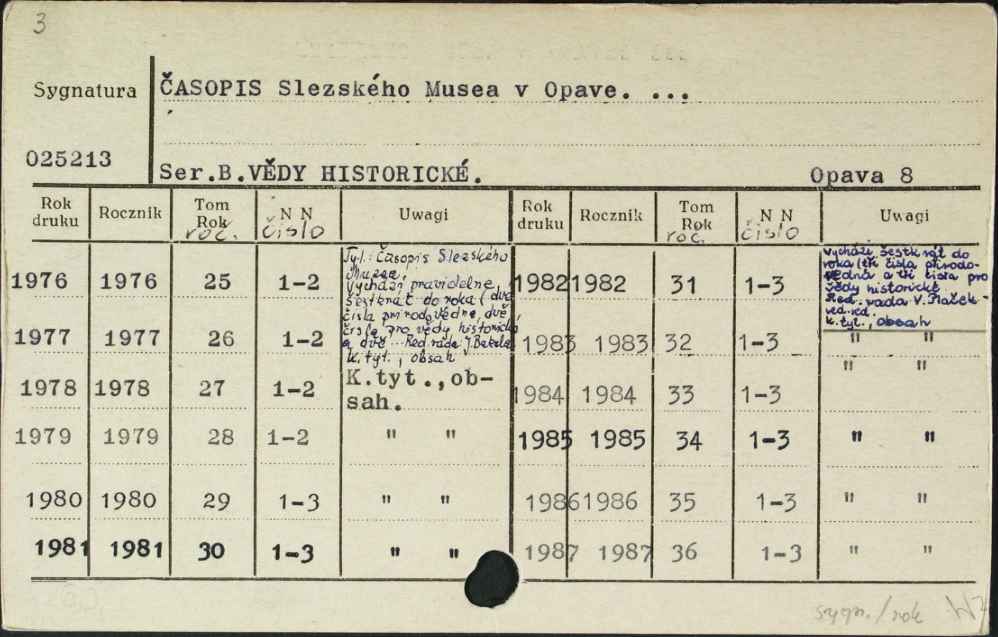 3
Sygnatura
ČASOPIS Slezského Musea v Opave. ...
025213
Ser.B.VĚDY HISTORICKÉ.
Opava 8
Rok druku Rocznik Tom Rok N N Uwagi Rok druku Rocznik Tom Rok N N Uwagi
roč. číslo roč. číslo
1976 1976 25 1-2
Tyt.: Časopis Slezského
Musea.
Vychází pravidelně
šestkrát do roka (dvě
čísla přírodovědné, dvě
čísla pro vědy historické
a dvě ... Red. rada J.
k. tyt., obsah
1982 1982 31 1-3
Vychází šestkrát do
roka (tři čísla přírodo-
vědná a tři čísla pro
vědy historické
Red. rada V. Plaček -
ved. red.
k. tyt., obsah
1977 1977 26 1-2
1983 1983 32 1-3 " "
" "
1978 1978 27 1-2 K.tyt.,ob-
sah.
1984 1984 33 1-3
1979 1979 28 1-2 " "
1985 1985 34 1-3 " "
1980 1980 29 1-3 " "
1986 1986 35 1-3 " "
1981 1981 30 1-3 " "
1987 1987 36 1-3 " "
sygn./rok